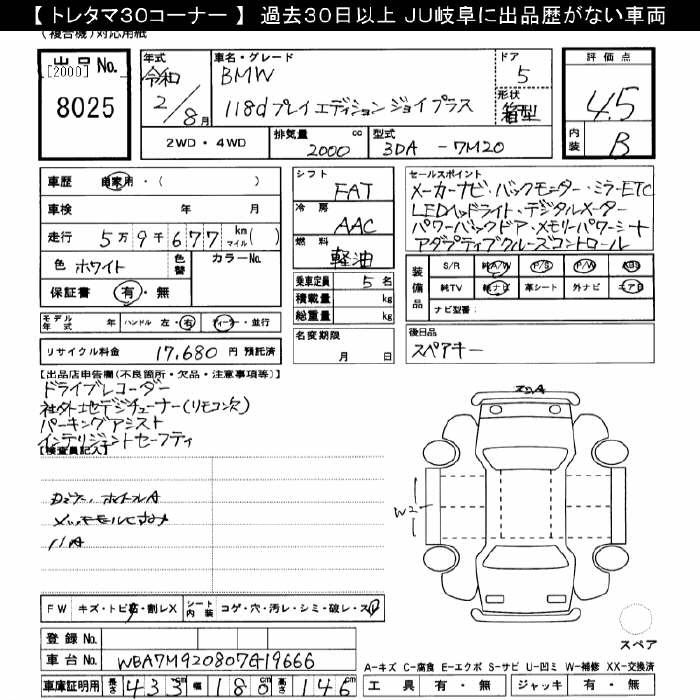 【 トレタマ30コーナー 】 過去30日以上 JU岐阜に出品歴がない車両
(複合機)対応用紙
出品No.
[2000]
8025
年式
令和
2/8月
車名・グレード
BMW
118d プレイ エディション ジョイ プラス
ドア
5
形状
箱型
評価点
4.5
内装
B
2WD・4WD
排気量
2000
cc
型式
3DA -7M20
車歴 自家用・( )
車検 年 月
走行 5万9千677 km マイル( )
色 ホワイト
色替
カラーNo.
保証書 有・無
モデル年式 年 ハンドル 左・右 ディーラー・並行
リサイクル料金 17,680 円 預託済
シフト
FAT
冷房
AAC
燃料
軽油
乗車定員 5 名
積載量 kg
総重量 kg
名変期限
月 日
セールスポイント
メーカーナビ・バックモニター・ミラーETC
LEDヘッドライト・デジタルメーター
パワーバックドア・メモリーパワーシート
アダプティブクルーズコントロール
装備品
S/R 純A/W P/S P/W ABS
純TV 純ナビ 革シート 外ナビ エアB
ナビ型番:
後日品
スペアキー
【出品店申告欄(不良箇所・欠品・注意事項等)】
ドライブレコーダー
社外地デジチューナー(リモコン欠)
パーキングアシスト
インテリジェントセーフティ
【検査員記入】
ハA
W2
FW キズ・トビ石・割レX
シート内装 コゲ・穴・汚レ・シミ・破レ・スレ
登録No.
車台No. WBA7M920807G19666
車庫証明用 長さ 433 幅 180 高さ 146 cm
スペア
A-キズ C-腐食 E-エクボ S-サビ U-凹ミ W-補修 XX-交換済
工具 有・無 ジャッキ 有・無